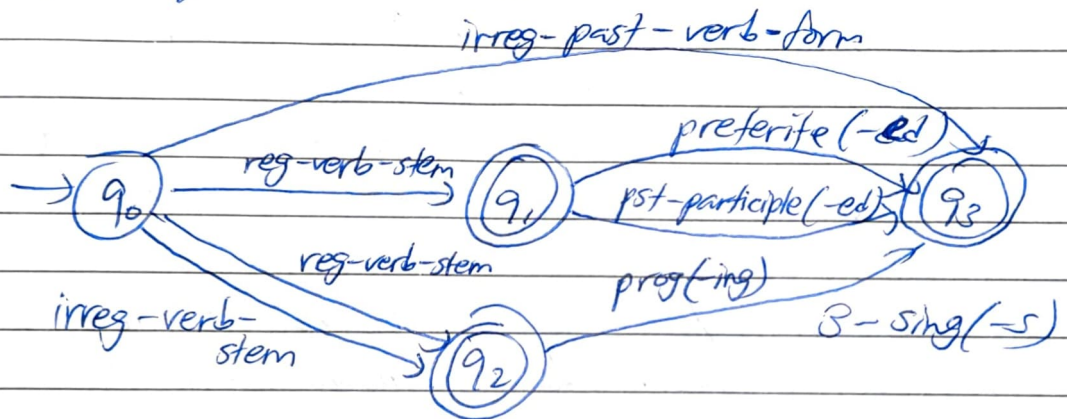 irreg-past-verb-form
preferite (-ed)
reg-verb-stem
q0
q1
pst-participle (-ed)
q3
reg-verb-stem
prog(-ing)
irreg-verb-
stem
3-sing(-s)
q2